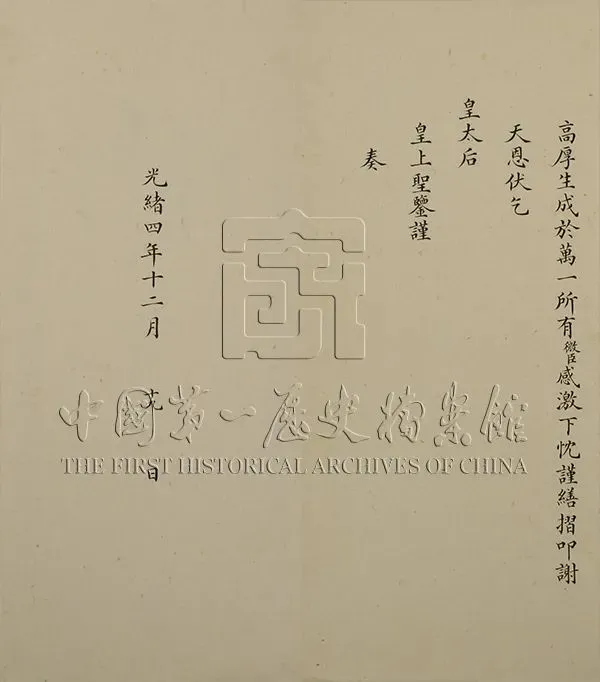 高厚生成於萬一所有微臣感激下忱謹繕摺叩謝
天恩伏乞
皇太后
皇上聖鑒謹
奏
光緒四年十二月 日
中國第一歷史檔案館
THE FIRST HISTORICAL ARCHIVES OF CHINA